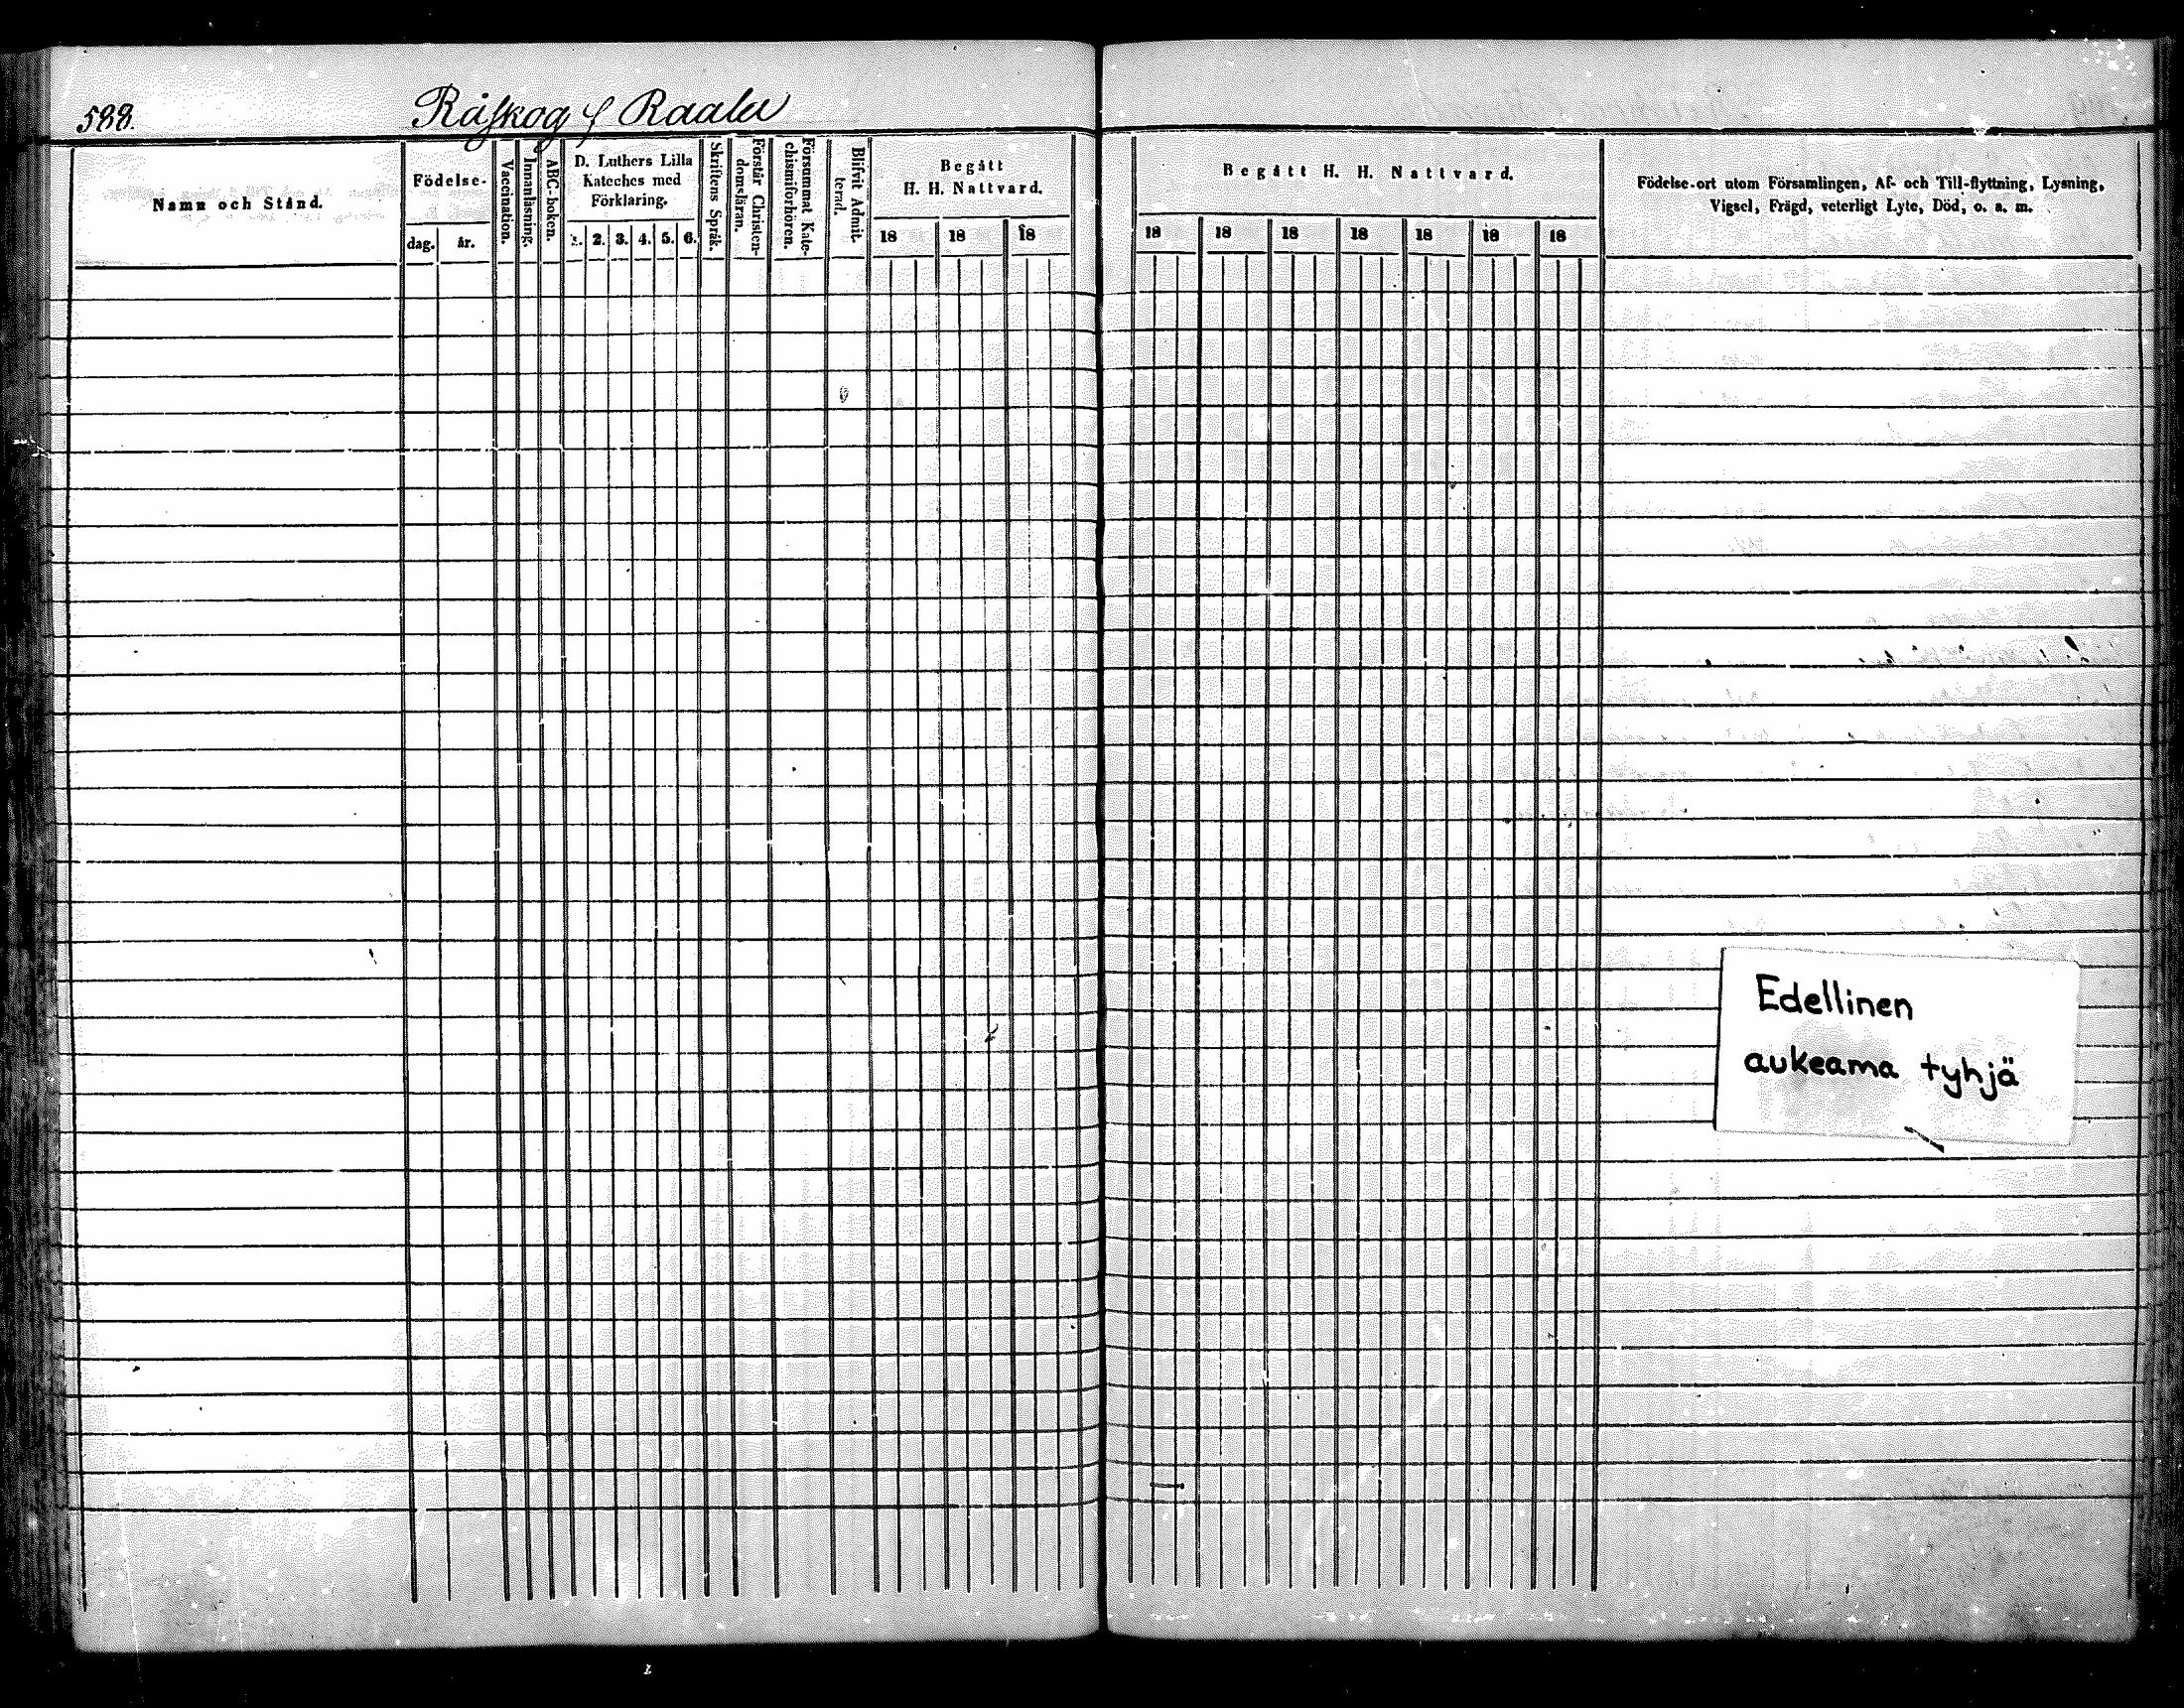 588.
Råskog f Raala
Namn och Stånd.
Födelse-
dag. år.
Vaccination.
Innanläsning.
ABC-boken.
D. Luthers Lilla
Kateches med
Förklaring.
1. 2. 3. 4. 5. 6.
Skriftens Språk.
Förstår Christen-
domsläran.
Försummat Kate-
chismiförhören.
Blifvit Admit-
terad.
Begått
H. H. Nattvard.
18 18 18
Begått H. H. Nattvard.
18 18 18 18 18 18 18
Födelse-ort utom Församlingen, Af- och Till-flyttning, Lysning,
Vigsel, Frägd, veterligt Lyte, Död, o. s. m.
Edellinen
aukeama tyhjä